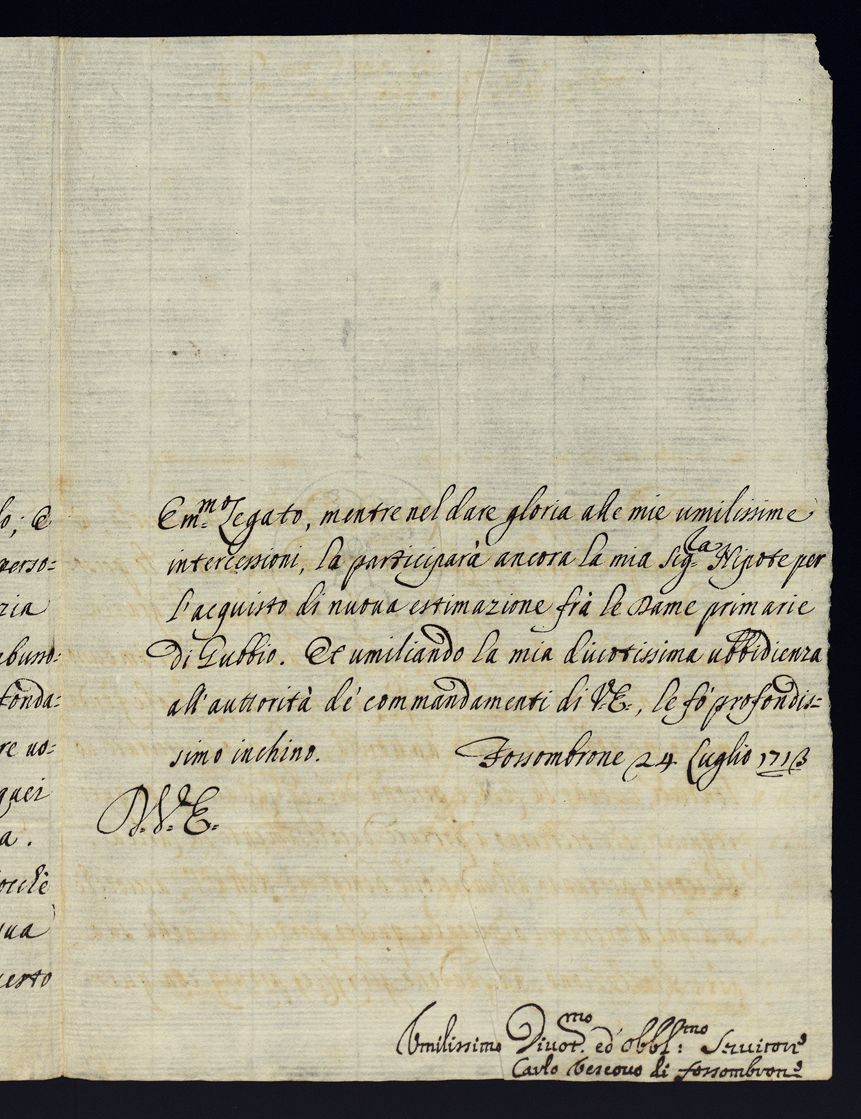 lo; e
perso=
zia
abuno=
fonda=
re uo=
quei
a.
ioechè
ua
certo
Em:mo Legato, mentre nel dare gloria alle mie umilissime
intercessioni, la participarà ancora la mia Sig:ra Nipote per
l'acquisto di nuova estimazione frà le Dame primarie
di Gubbio. Et umiliando la mia divotissima ubbidienza
all'autorità de' commandamenti di V.E., le fò profondis=
simo inchino. Fossombrone 24 Luglio 1713
D. V. E.
Umilissimo Divot:mo ed Obbl:mo Seruitore
Carlo Vescovo di Fossombrone